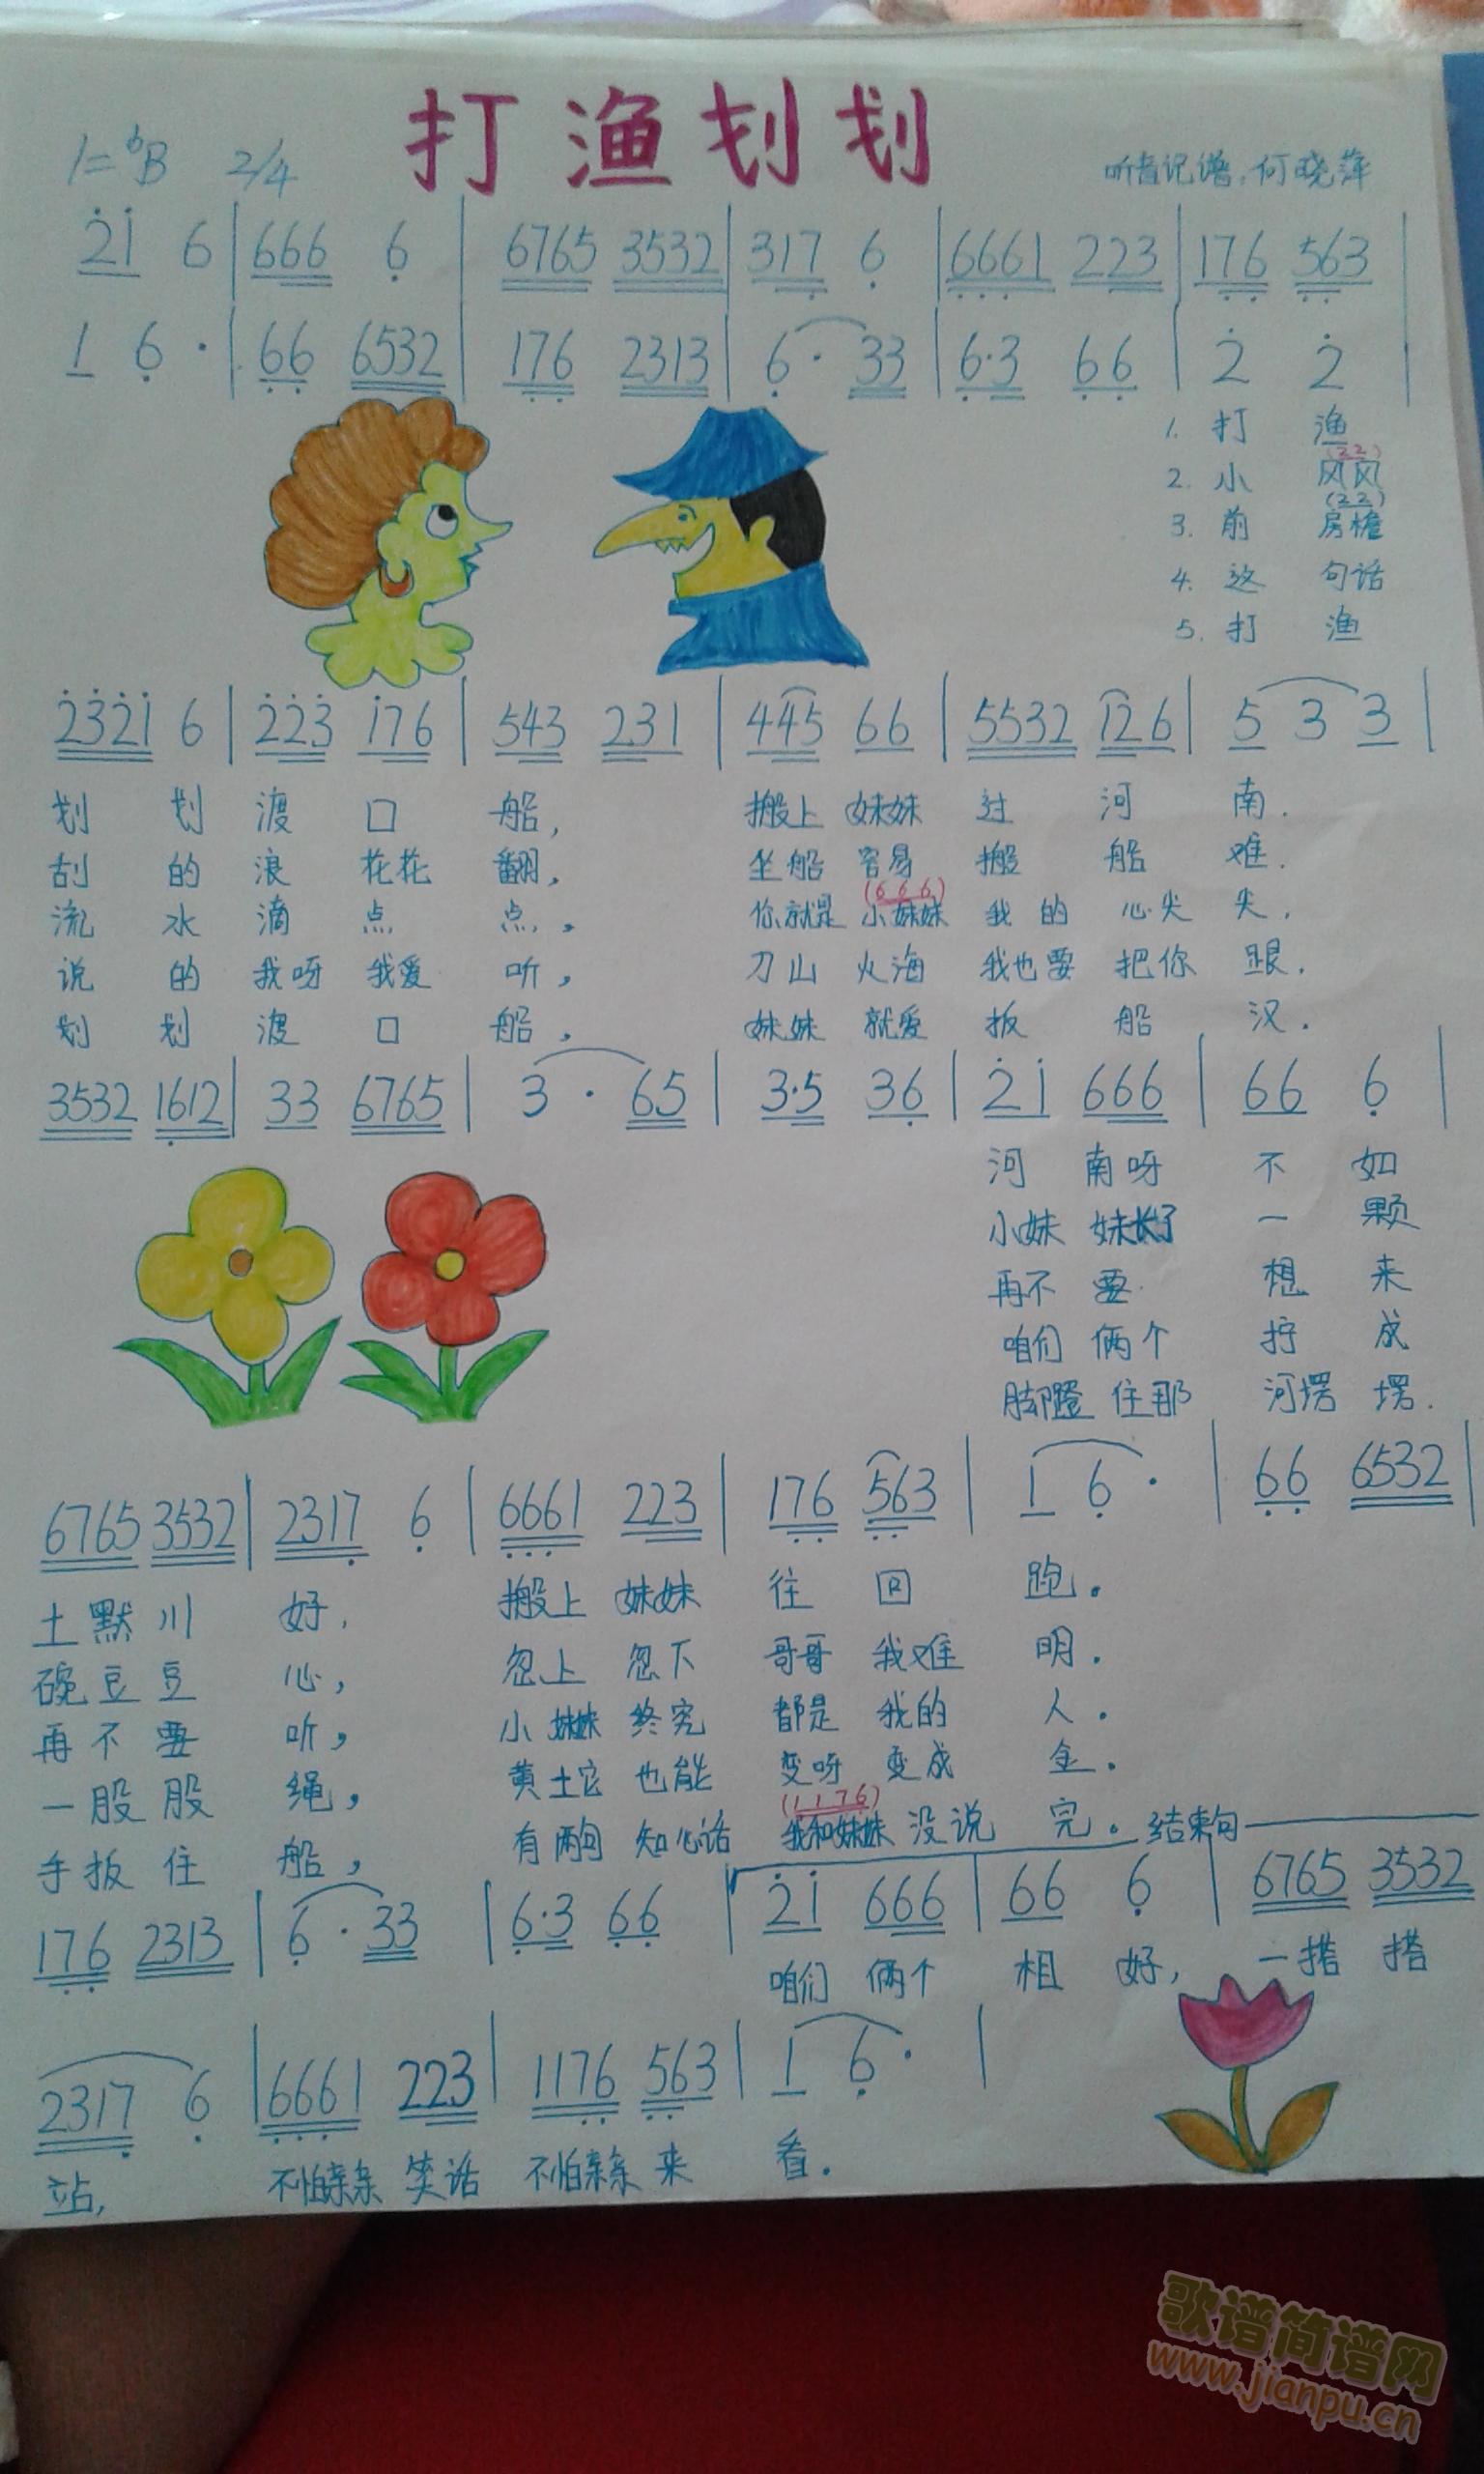 打渔划划
1=ᵇB 2/4 听音记谱:何晓萍
2̇1̇ 6 | 666 6̣ | 6765 3532 | 317̣ 6̣ | 6̣6̣6̣1 223 | 17̣6̣ 5̣6̣3 |
1 6̣· | 6̣6̣ 6532 | 17̣6̣ 2313 | 6̣· 33 | 6̣·3 6̣6̣ | 2̇ 2̇ |
1. 打 渔
(22)
2. 小 风风
(22)
3. 前 房檐
4. 这 句话
5. 打 渔
2̇3̇2̇1̇ 6 | 2̇2̇3̇ 1̇76 | 543 231 | 445 66 | 5532 1̇26 | 5 3 3 |
划 划 渡 口 船, 搬上 妹妹 过 河 南.
刮 的 浪 花花 翻, 坐船 容易 搬 船 难.
(666)
流 水 滴 点 点, 你就是 小妹妹 我 的 心尖 尖.
说 的 我呀 我爱 听, 刀山 火海 我也要 把你 跟.
划 划 渡 口 船, 妹妹 就爱 扳 船 汉.
3532 16̣12 | 33 6765 | 3· 65 | 3·5 36̣ | 2̇1̇ 666 | 66 6̣ |
河 南呀 不 如
小妹 妹长了 一 颗
再不 要 想 来
咱们 俩个 拧 成
脚蹬 住那 河塄 塄.
6765 3532 | 2317̣ 6̣ | 6̣6̣6̣1 223 | 17̣6̣ 5̣6̣3 | 1 6̣· | 6̣6̣ 6532 |
土默川 好, 搬上 妹妹 往 回 跑.
碗豆豆 心, 忽上 忽下 哥哥 我难 明.
再不要 听, 小妹妹 终究 都是 我的 人.
一股股 绳, 黄土它 也能 变呀 变成 金.
(1176)
手扳住 船, 有两句 知心话 我和妹妹 没说 完. 结束句
17̣6̣ 2313 | 6̣· 33 | 6̣·3 6̣6̣ | 2̇1̇ 666 | 66 6̣ | 6765 3532
咱们 俩个 相 好, 一搭 搭
2317̣ 6̣ | 6̣6̣6̣1 223 | 117̣6̣ 5̣6̣3 | 1 6̣· |
站, 不怕亲亲 笑话 不怕亲亲 来 看.
歌谱简谱网
www.jianpu.cn